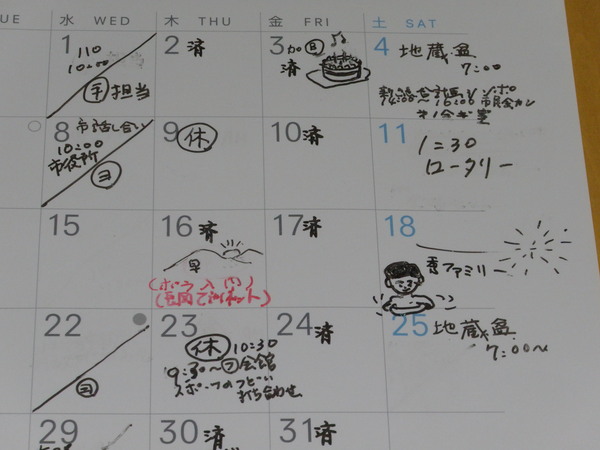 UE 水 WED 木 THU 金 FRI 土 SAT
1 110
10:00
担当
2 済
3 カロ 日
済
4 地蔵盆
7:00
10:00 市民会カン
8 市話し合い
10:00
市役所
ヨ
9 休
10 済
11
1:30
ロータリー
15
16 済
早
17 済
18
秀ファミリー
22
ヨ
23
休 10:30
9:30〜 会館
スポーツのつどい
打ち合わせ
24 済
25 地蔵盆
7:00〜
29
30 済
31 済